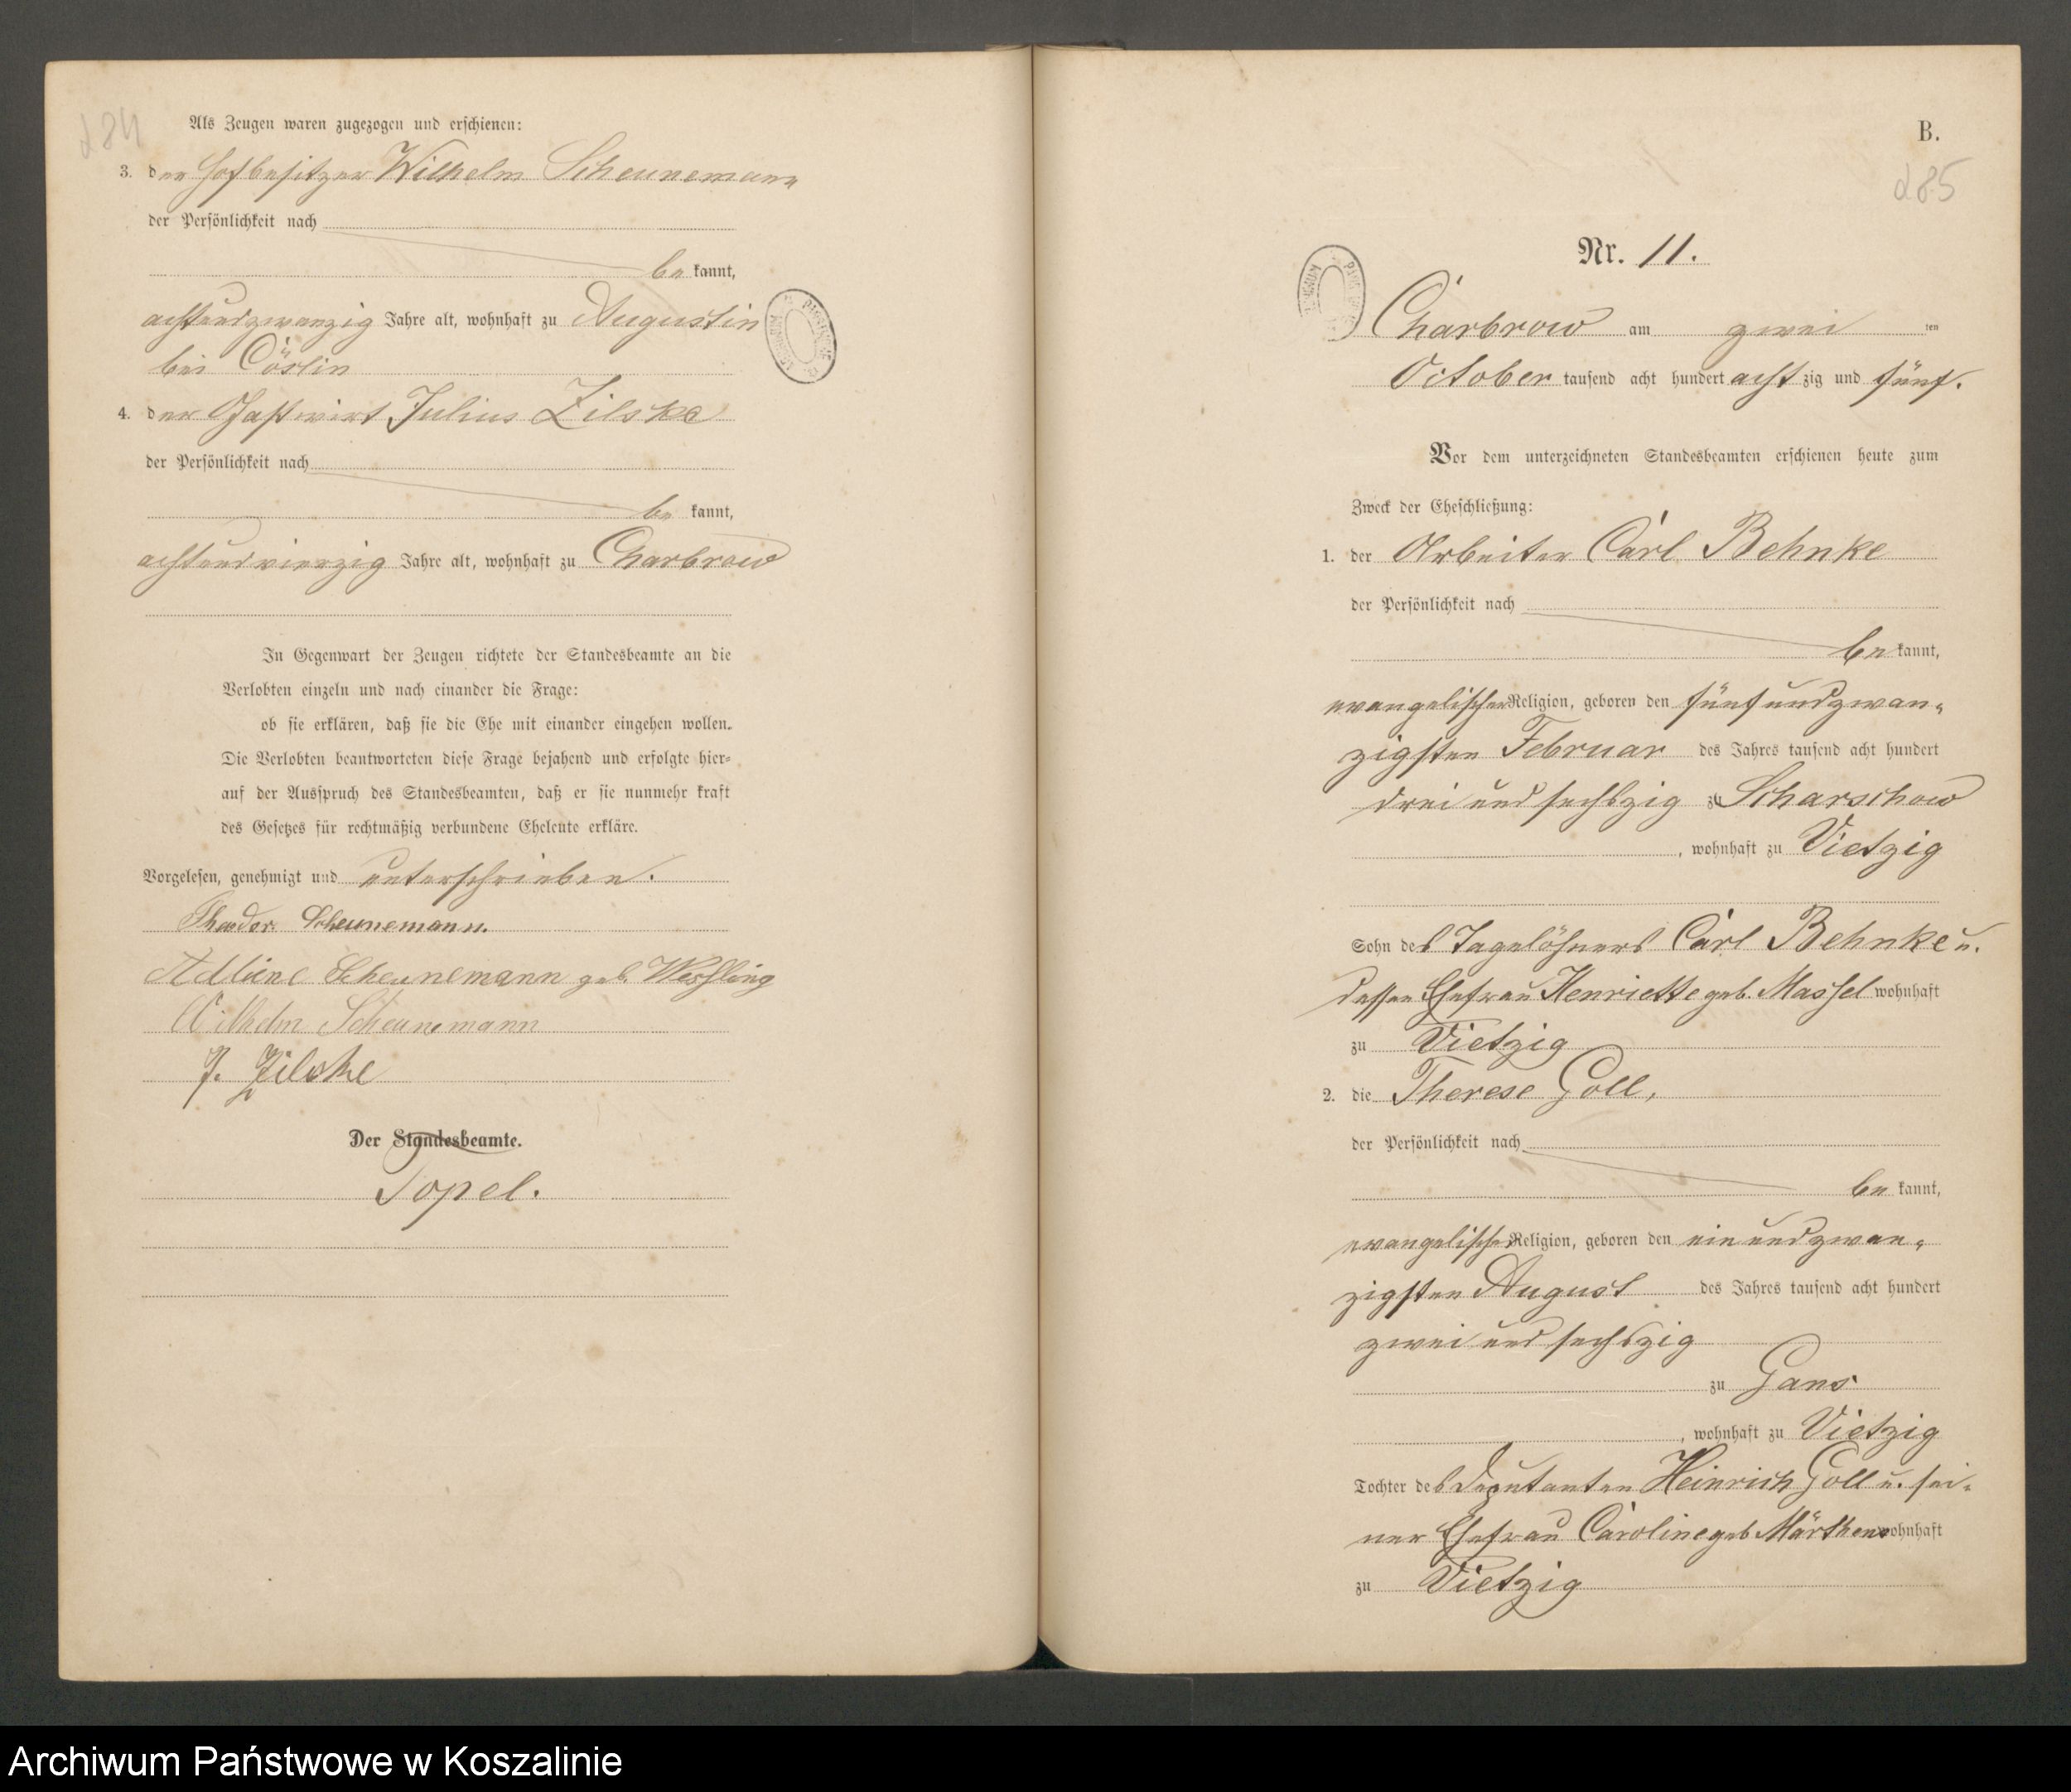 284
Als Zeugen waren zugezogen und erschienen:
3. der Hofbesitzer Wilhelm Scheunemann
der Persönlichkeit nach
be kannt,
achtundzwanzig Jahre alt, wohnhaft zu Augustin
bei Cöslin
4. der Gastwirt Julius Zilske
der Persönlichkeit nach
be kannt,
achtundvierzig Jahre alt, wohnhaft zu Charbrow
In Gegenwart der Zeugen richtete der Standesbeamte an die
Verlobten einzeln und nach einander die Frage:
ob sie erklären, daß sie die Ehe mit einander eingehen wollen.
Die Verlobten beantworteten diese Frage bejahend und erfolgte hier-
auf der Ausspruch des Standesbeamten, daß er sie nunmehr kraft
des Gesetzes für rechtmäßig verbundene Eheleute erkläre.
Vorgelesen, genehmigt und unterschrieben.
Theodor Scheunemann.
Adline Scheunemann geb. Wessling
Wilhelm Scheunemann
J. Zilske
Der Standesbeamte.
Topel.
B.
285
Nr. 11.
Charbrow am zwei ten
October tausend acht hundert acht zig und fünf.
Vor dem unterzeichneten Standesbeamten erschienen heute zum
Zweck der Eheschließung:
1. der Arbeiter Carl Behnke
der Persönlichkeit nach
be kannt,
evangelischer Religion, geboren den fünfundzwan-
zigsten Februar des Jahres tausend acht hundert
drei und sechszig zu Scharschow
, wohnhaft zu Vietzig
Sohn des Tagelöhners Carl Behnke u.
dessen Ehefrau Henriette geb. Massel wohnhaft
zu Vietzig
2. die Therese Goll,
der Persönlichkeit nach
be kannt,
evangelischer Religion, geboren den ein und zwan-
zigsten August des Jahres tausend acht hundert
zwei und sechszig
zu Gans
, wohnhaft zu Vietzig
Tochter des Deputanten Heinrich Goll u. sei-
ner Ehefrau Caroline geb Märthens wohnhaft
zu Vietzig
Archiwum Państwowe w Koszalinie